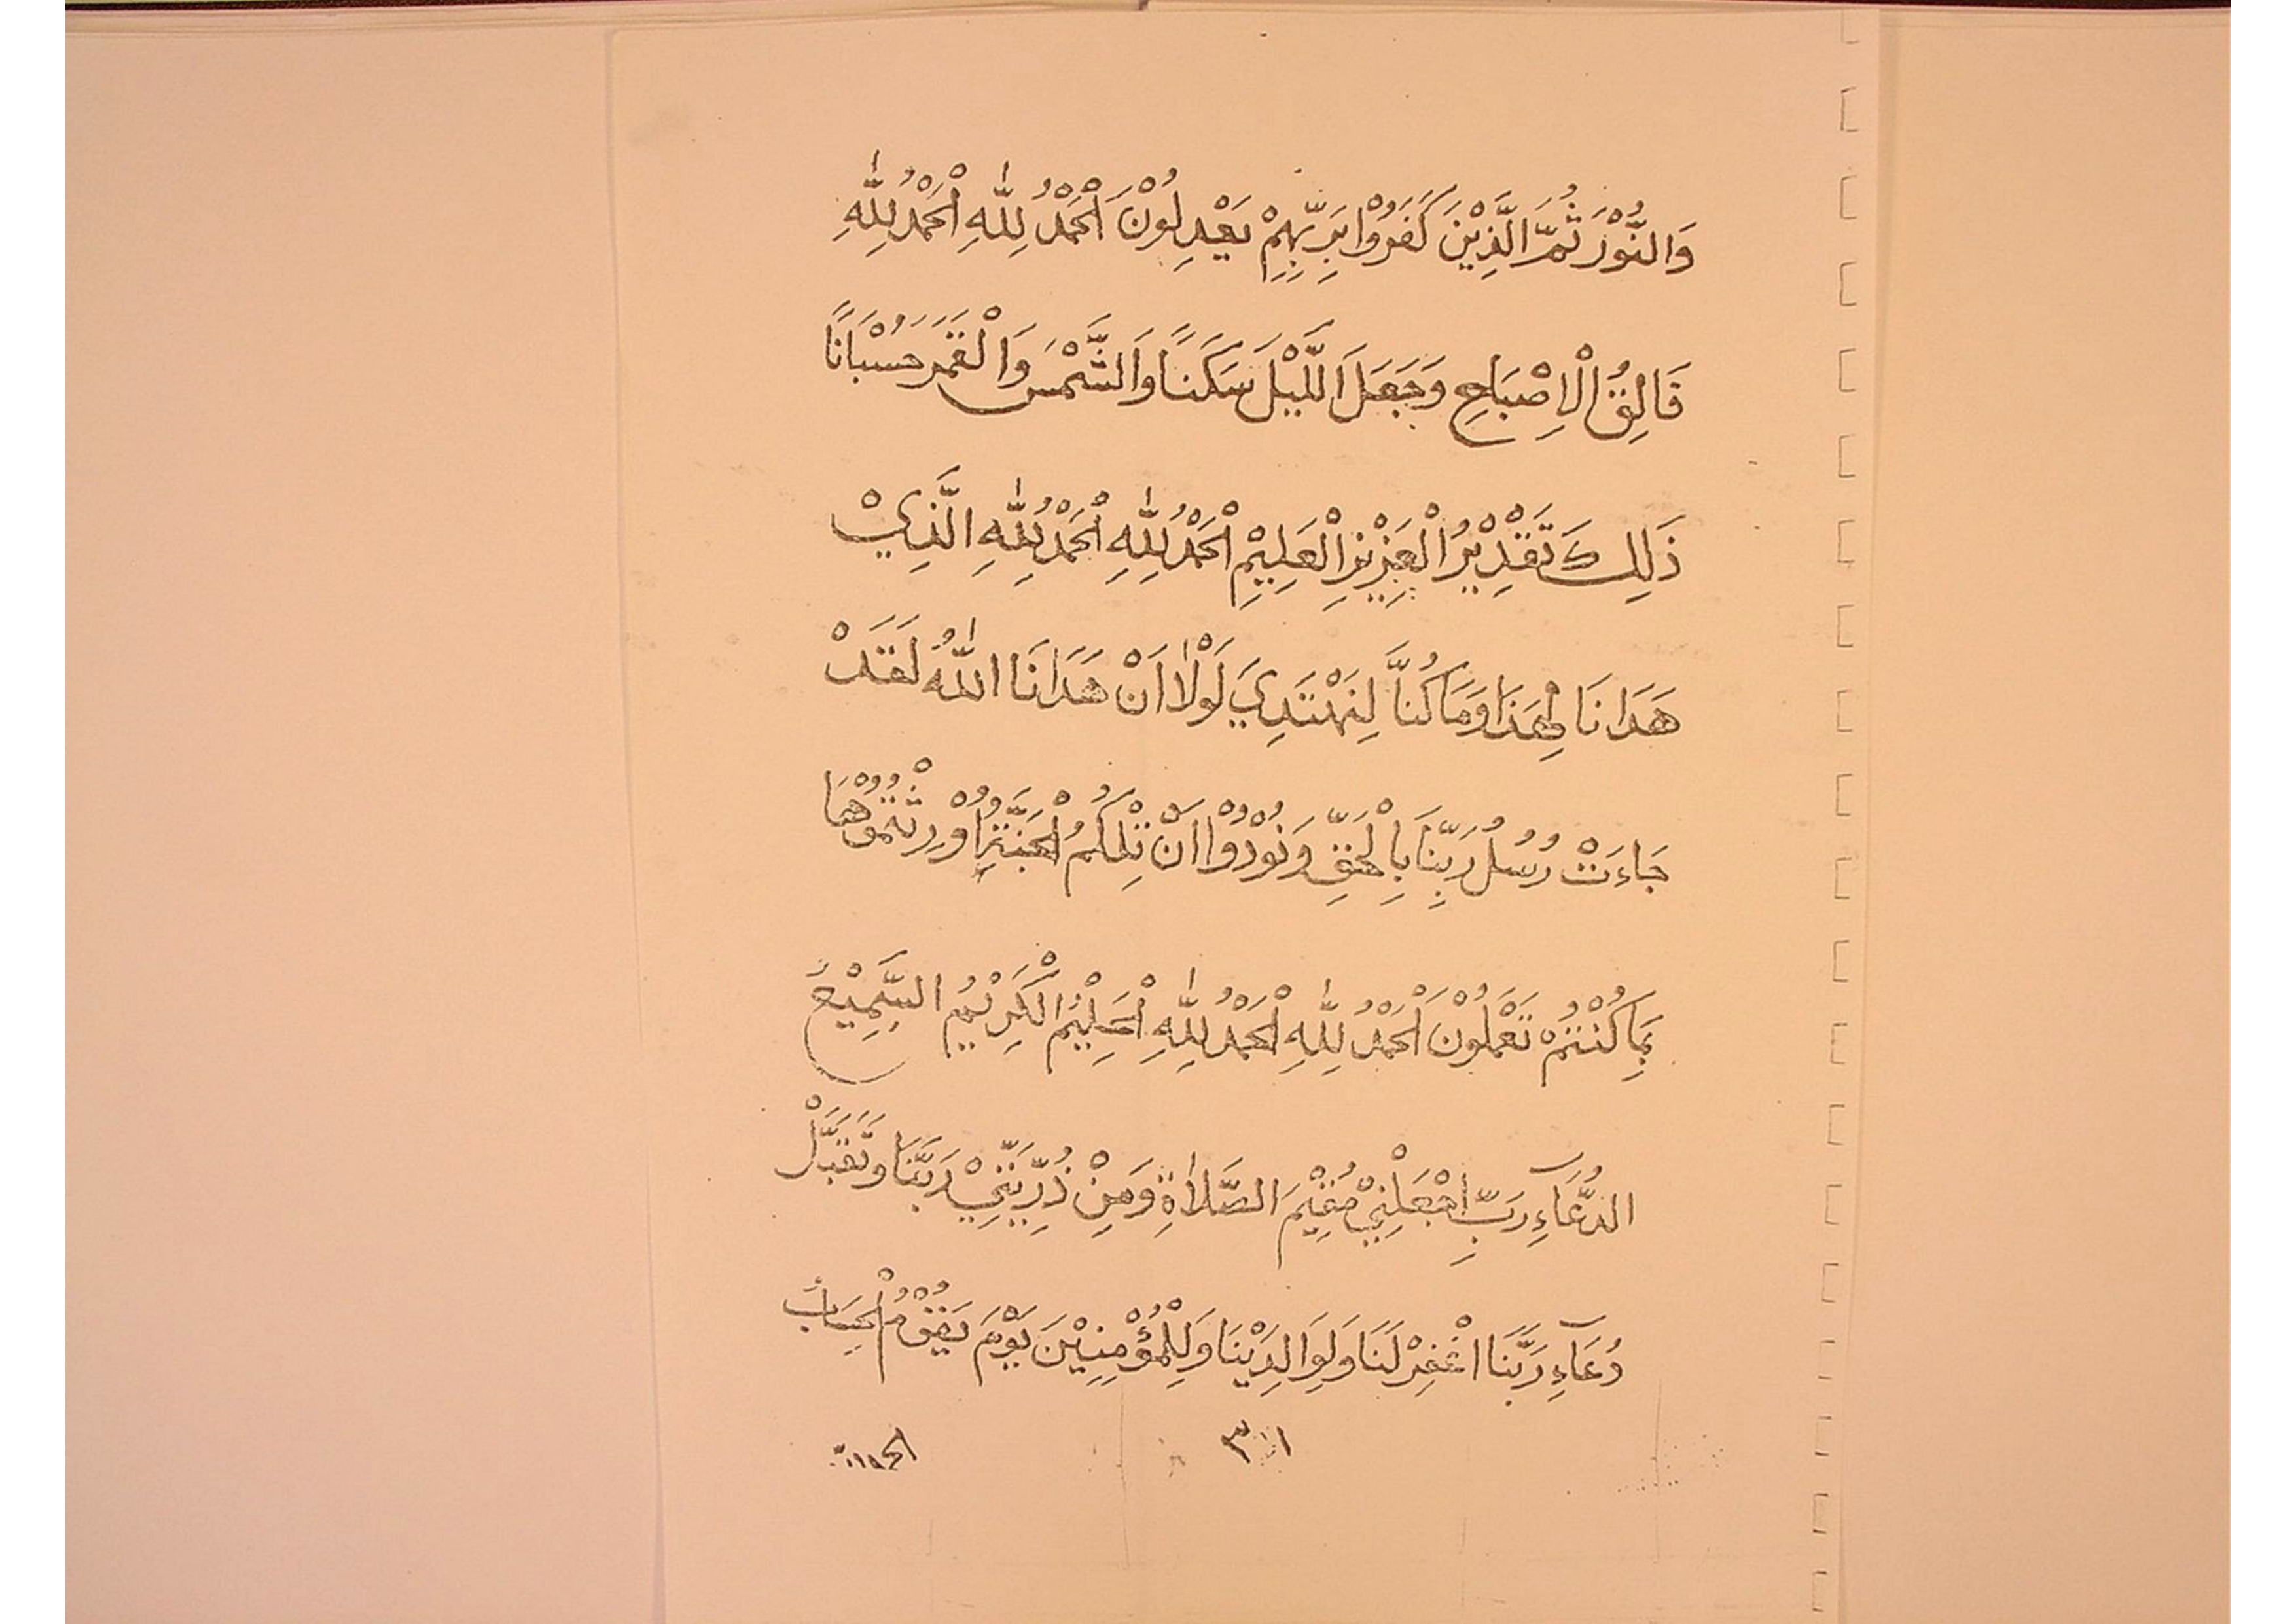 وَالنُّوْرَ ثُمَّ الَّذِيْنَ كَفَرُوْا بِرَبِّهِمْ يَعْدِلُوْنَ اَلْحَمْدُ لِلّٰهِ اَلْحَمْدُ لِلّٰهِ
فَالِقُ الْاِصْبَاحِ وَجَعَلَ الَّلَيْلَ سَكَنًا وَالشَّمْسَ وَالْقَمَرَ حُسْبَانًا
ذَلِكَ تَقْدِيْرُ الْعَزِيْزِ الْعَلِيْمِ اَلْحَمْدُ لِلّٰهِ اَلْحَمْدُ لِلّٰهِ الَّذِيْ
هَدَانَا لِهَذَا وَمَا كُنَّا لِنَهْتَدِيَ لَوْلَا اَنْ هَدَانَا اللّٰهُ لَقَدْ
جَاءَتْ رُسُلُ رَبِّنَا بِالْحَقِّ وَنُوْدُوْا اَنْ تِلْكُمُ الْجَنَّةُ اُوْرِثْتُمُوْهَا
بِمَا كُنْتُمْ تَعْمَلُوْنَ اَلْحَمْدُ لِلّٰهِ اَلْحَمْدُ لِلّٰهِ الْحَلِيْمُ الْكَرِيْمُ السَّمِيْعُ
الدُّعَآءِ رَبِّ اجْعَلْنِيْ مُقِيْمَ الصَّلَاةِ وَمِنْ ذُرِّيَّتِيْ رَبَّنَا وَتَقَبَّلْ
دُعَآءِ رَبَّنَا اغْفِرْ لَنَا وَلِوَالِدَيْنَا وَلِلْمُؤْمِنِيْنَ يَوْمَ يَقُوْمُ الْحِسَابُ